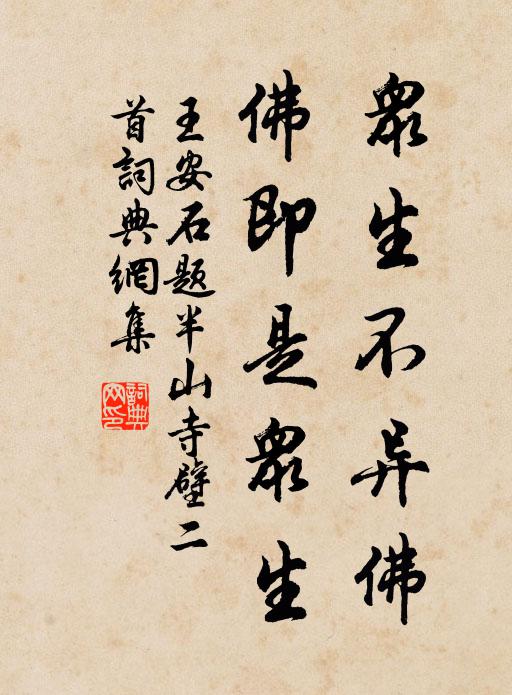 眾生不异佛
佛即是眾生
王安石題半山寺壁二
首詞典網集
詞典網印